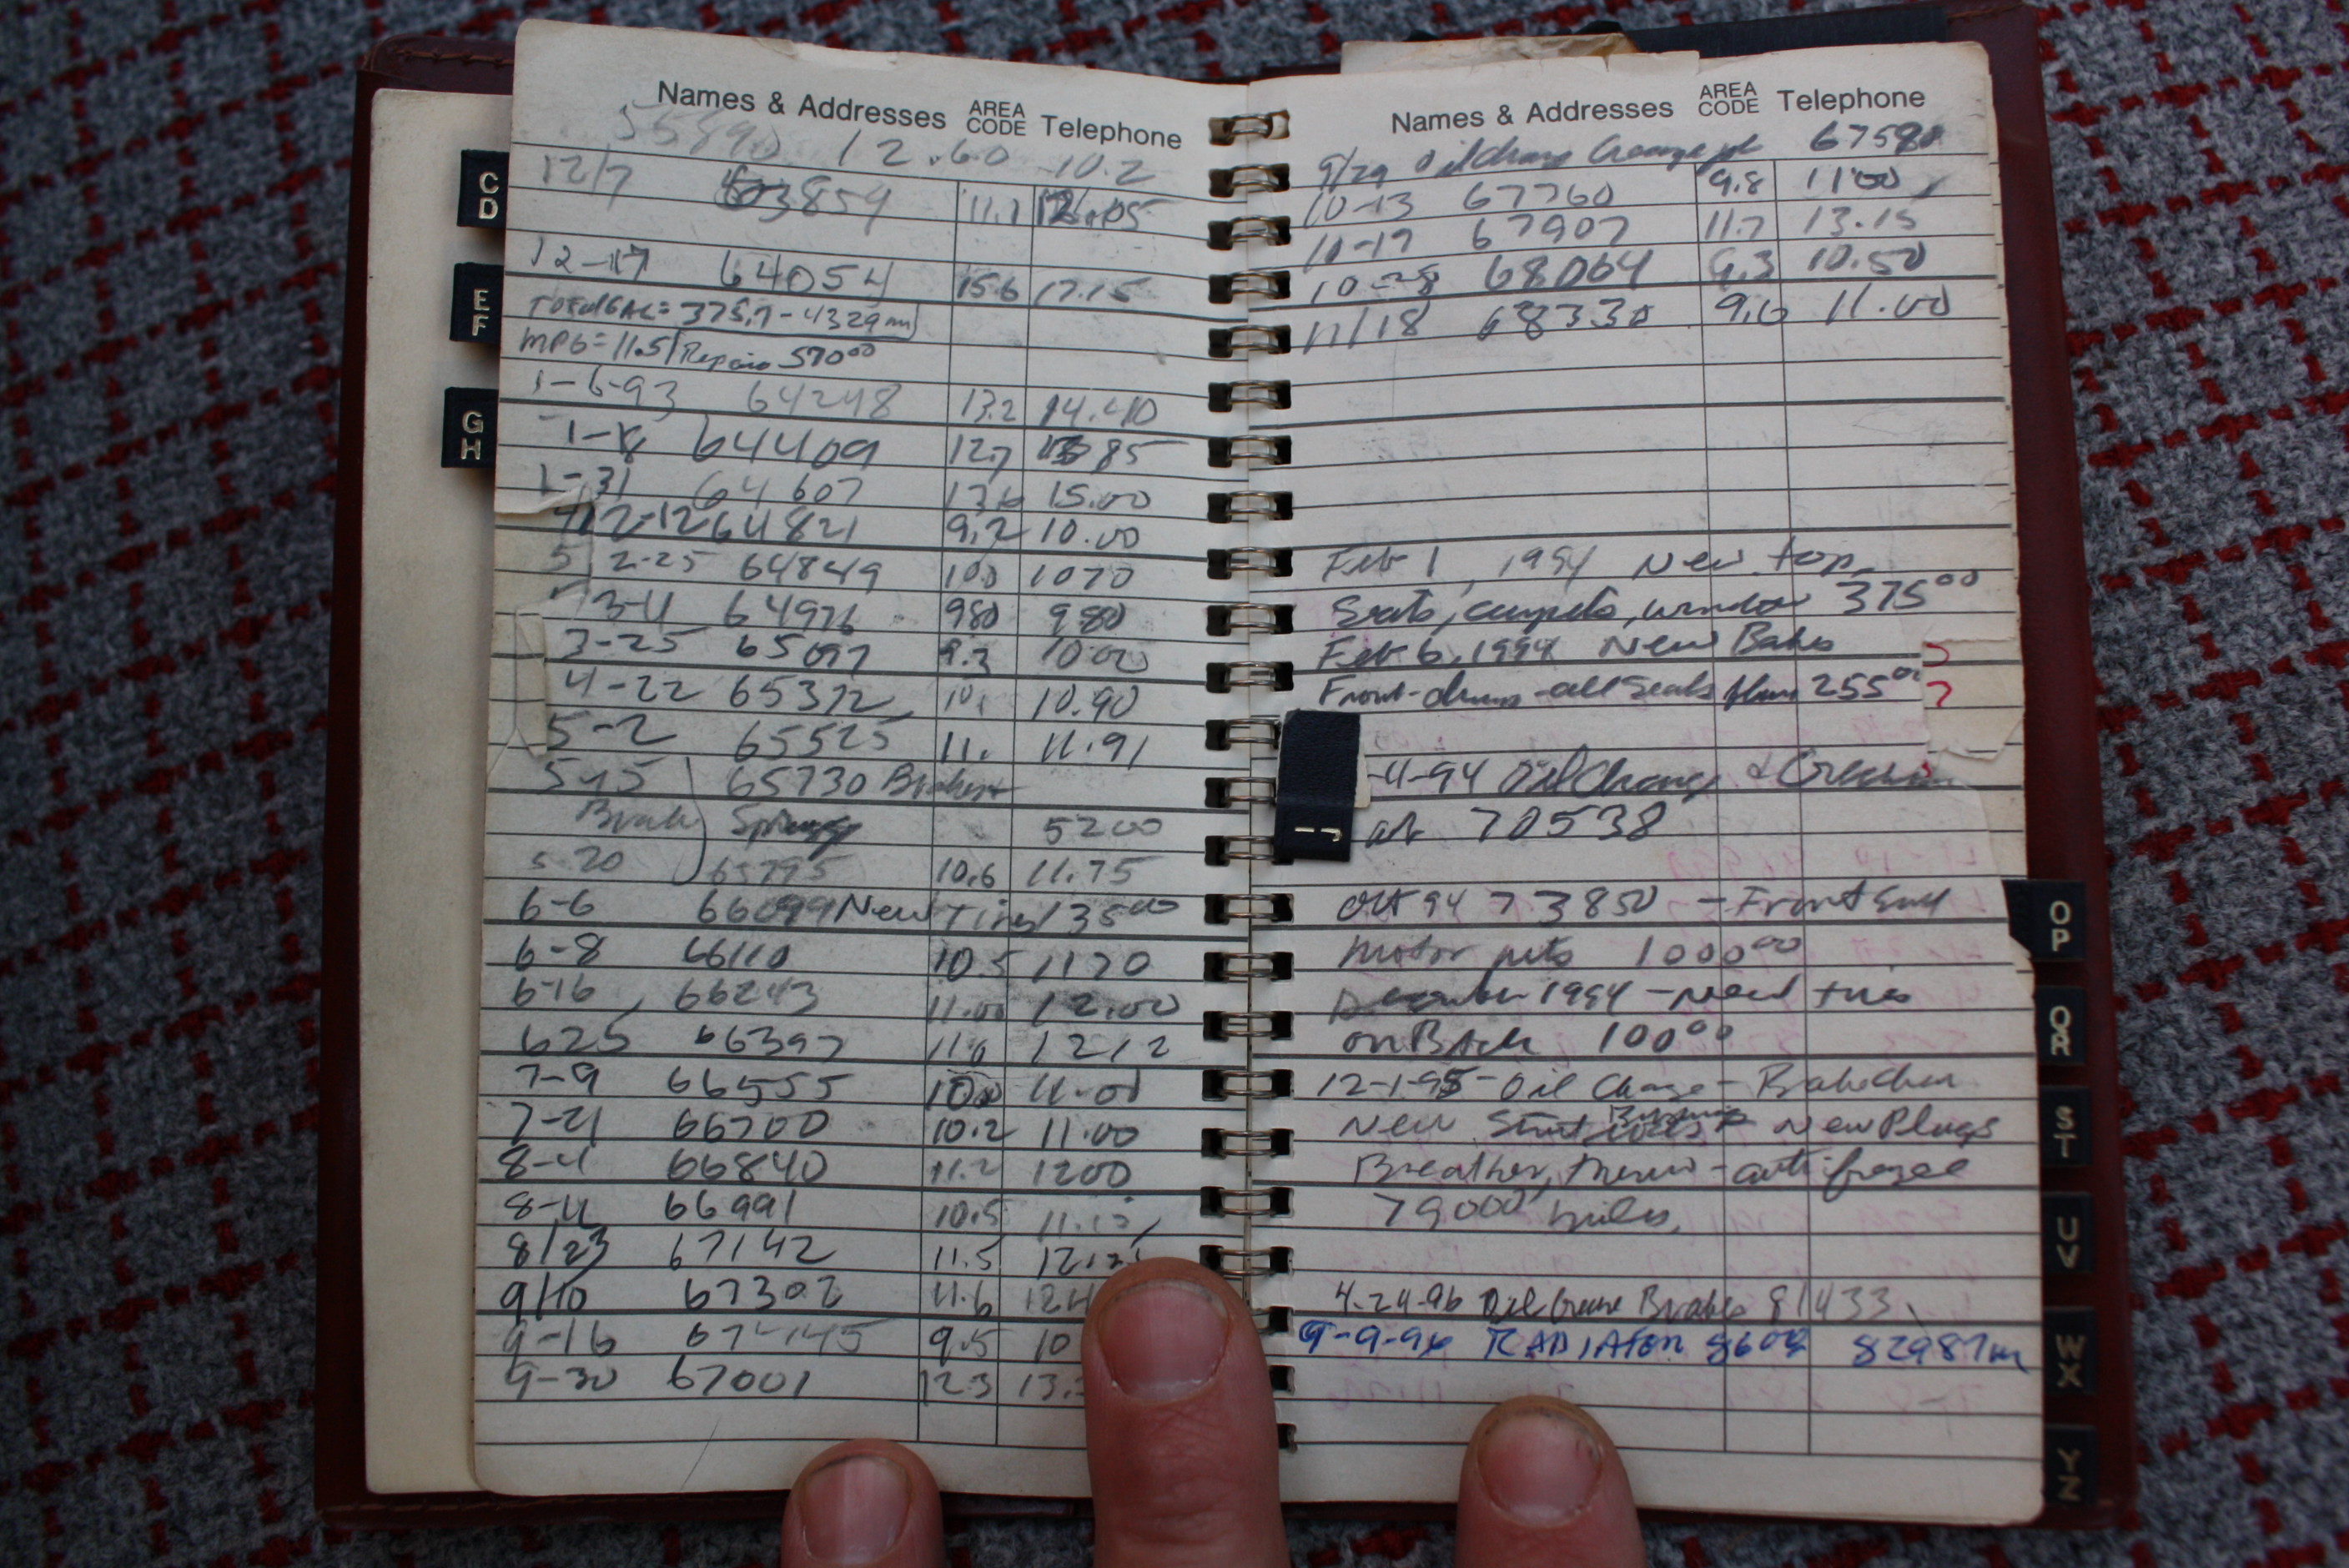 C
D
E
F
G
H
Names & Addresses AREA CODE Telephone
55890 12.60 10.2
12/7 63859 11.1
12-17 64054 15.6 17.15
Total GAL = 375.7 - 4329 mi
MPG = 11.5 / Repairs 570 00
1-6-93 64248 13.2 14.40
1-18 64409 12.7 13 85
1-31 64607 13.6 15.00
2-12 64821 9.2 10.00
2-25 64849 10.0 10 70
3-11 64976 980 9 80
3-25 65097 9.3 10.00
4-22 65372 10. 10.90
5-2 65525 11. 11.91
5-15 65730 Brakes +
Brake Springs 52 00
5-20 65795 10.6 11.75
6-6 66099 New Tires 135 00
6-8 66110 10.5 11 70
6-16 66243 11.00 12.00
625 66397 11.0 12 12
7-9 66555 10.0 11.00
7-21 66700 10.2 11.00
8-4 66840 11.2 12 00
8-11 66991 10.5 11.
8/23 67142 11.5 12.
9/10 67302 11.6 12
9-16 67445 9.5 10
9-30 67001 12.3 13.
Names & Addresses AREA CODE Telephone
9/29 Oil Change 67590
10-13 67760 9.8 11.00
10-19 67907 11.7 13.15
10-28 68064 9.3 10.50
11/18 68330 9.6 11.00
Feb 1, 1994 New top
Seats, carpets, window 375 00
Feb 6, 1994 New
Front-drums-all Seals 255 00
J
-4-94 Oil Change &
at 70538
Oct 94 73850 - Front End
Motor 1000 00
December 1994 - New tires
on Back 100 00
12-1-95 - Oil Change -
New Strut Bushings New Plugs
Breather, Thermo - anti freeze
79000 miles
4-24-96 Oil Grease Brakes 81433
9-9-96 RADIATOR 82987 m
O
P
Q
R
S
T
U
V
W
X
Y
Z